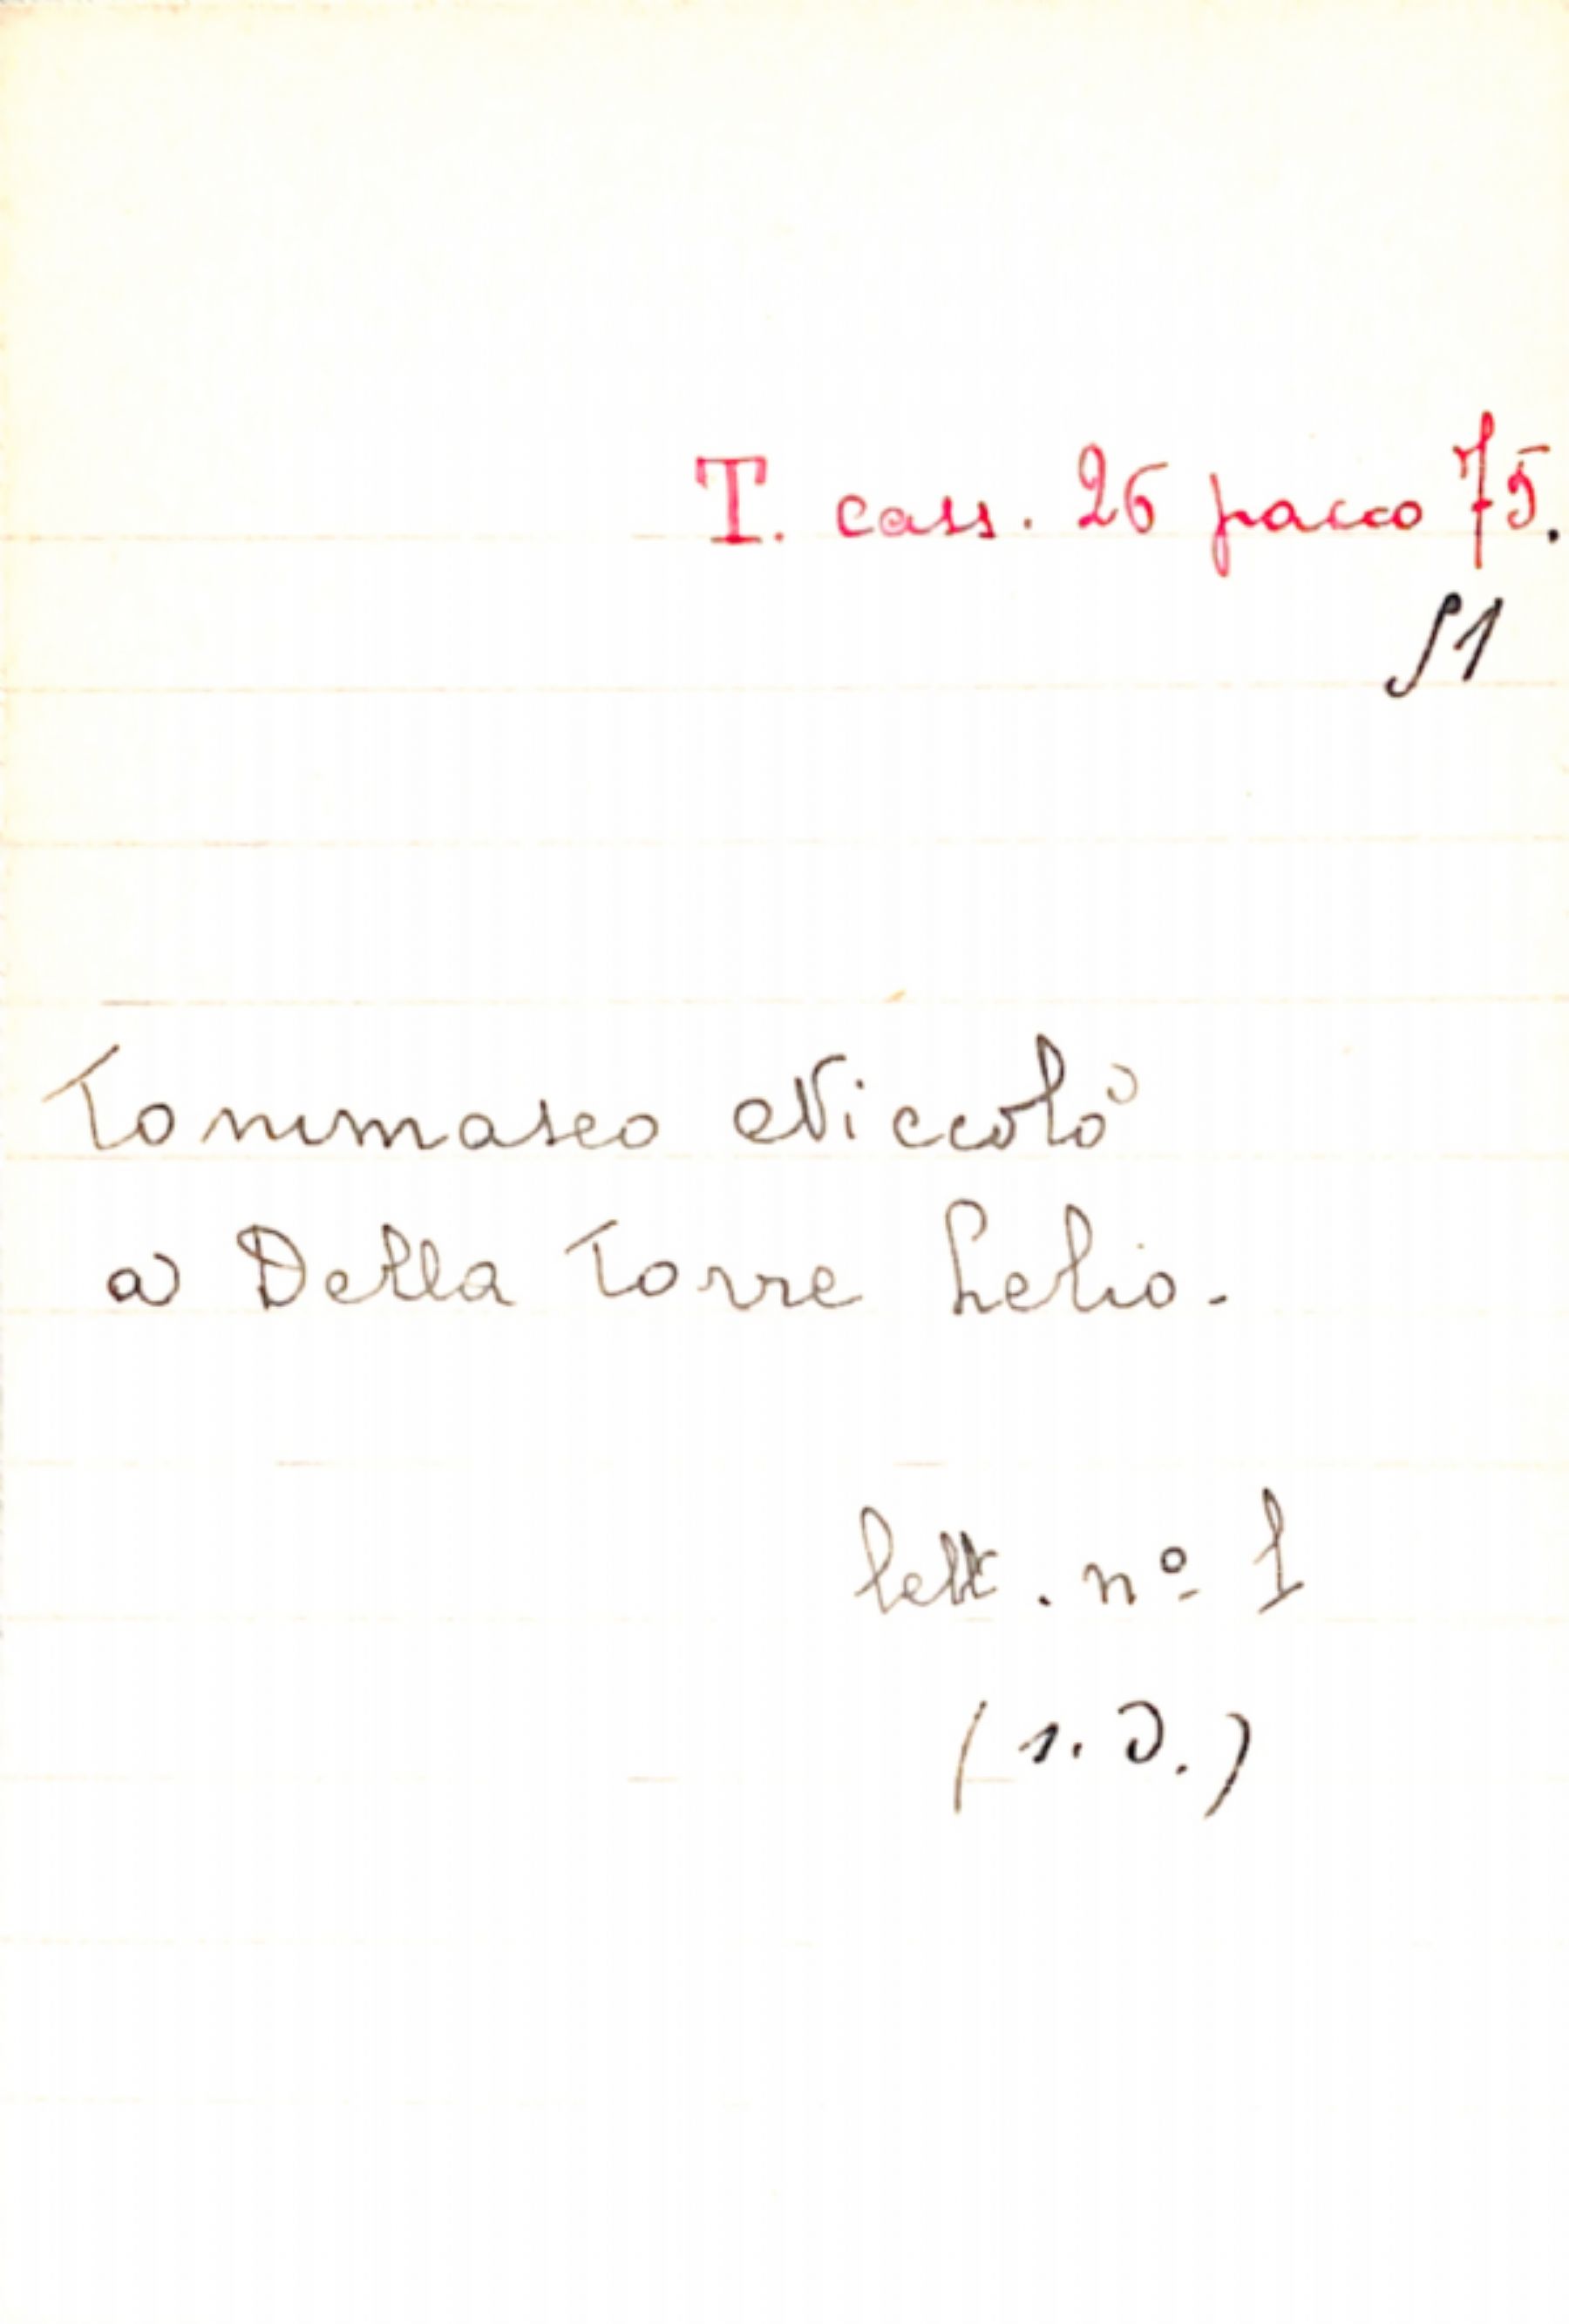 T. cass. 26 pacco 75.
51
Tommaseo Niccolò
a Della Torre Lelio.
lett. nº 1
(s. d.)